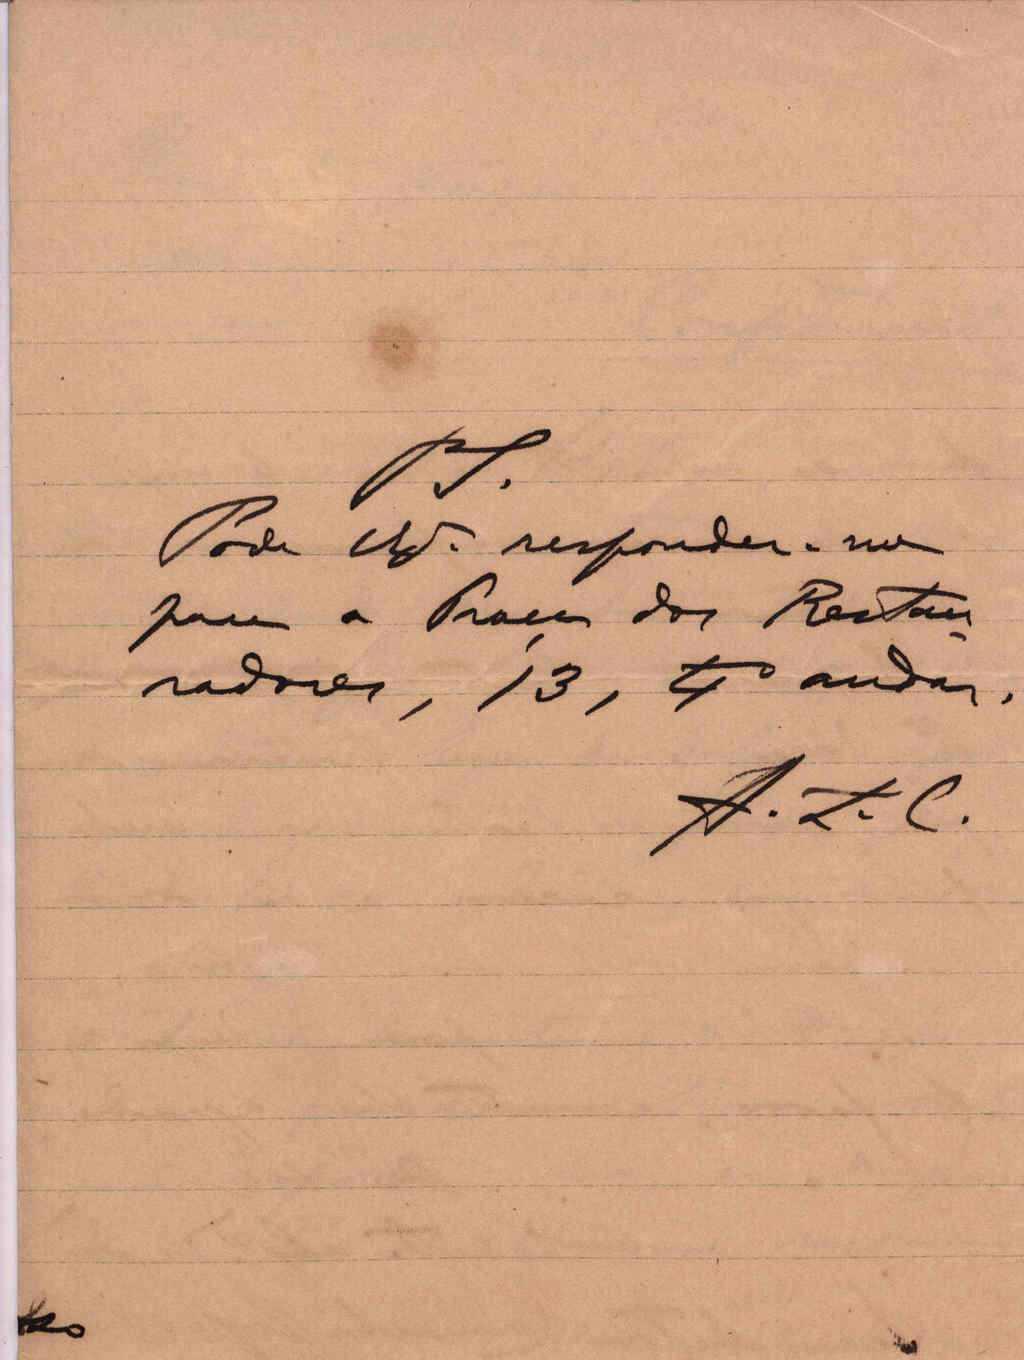 PS.
Pode V. responder-me
para a Praça dos Restau-
radores, 13, 4º andar.
A. L. C.